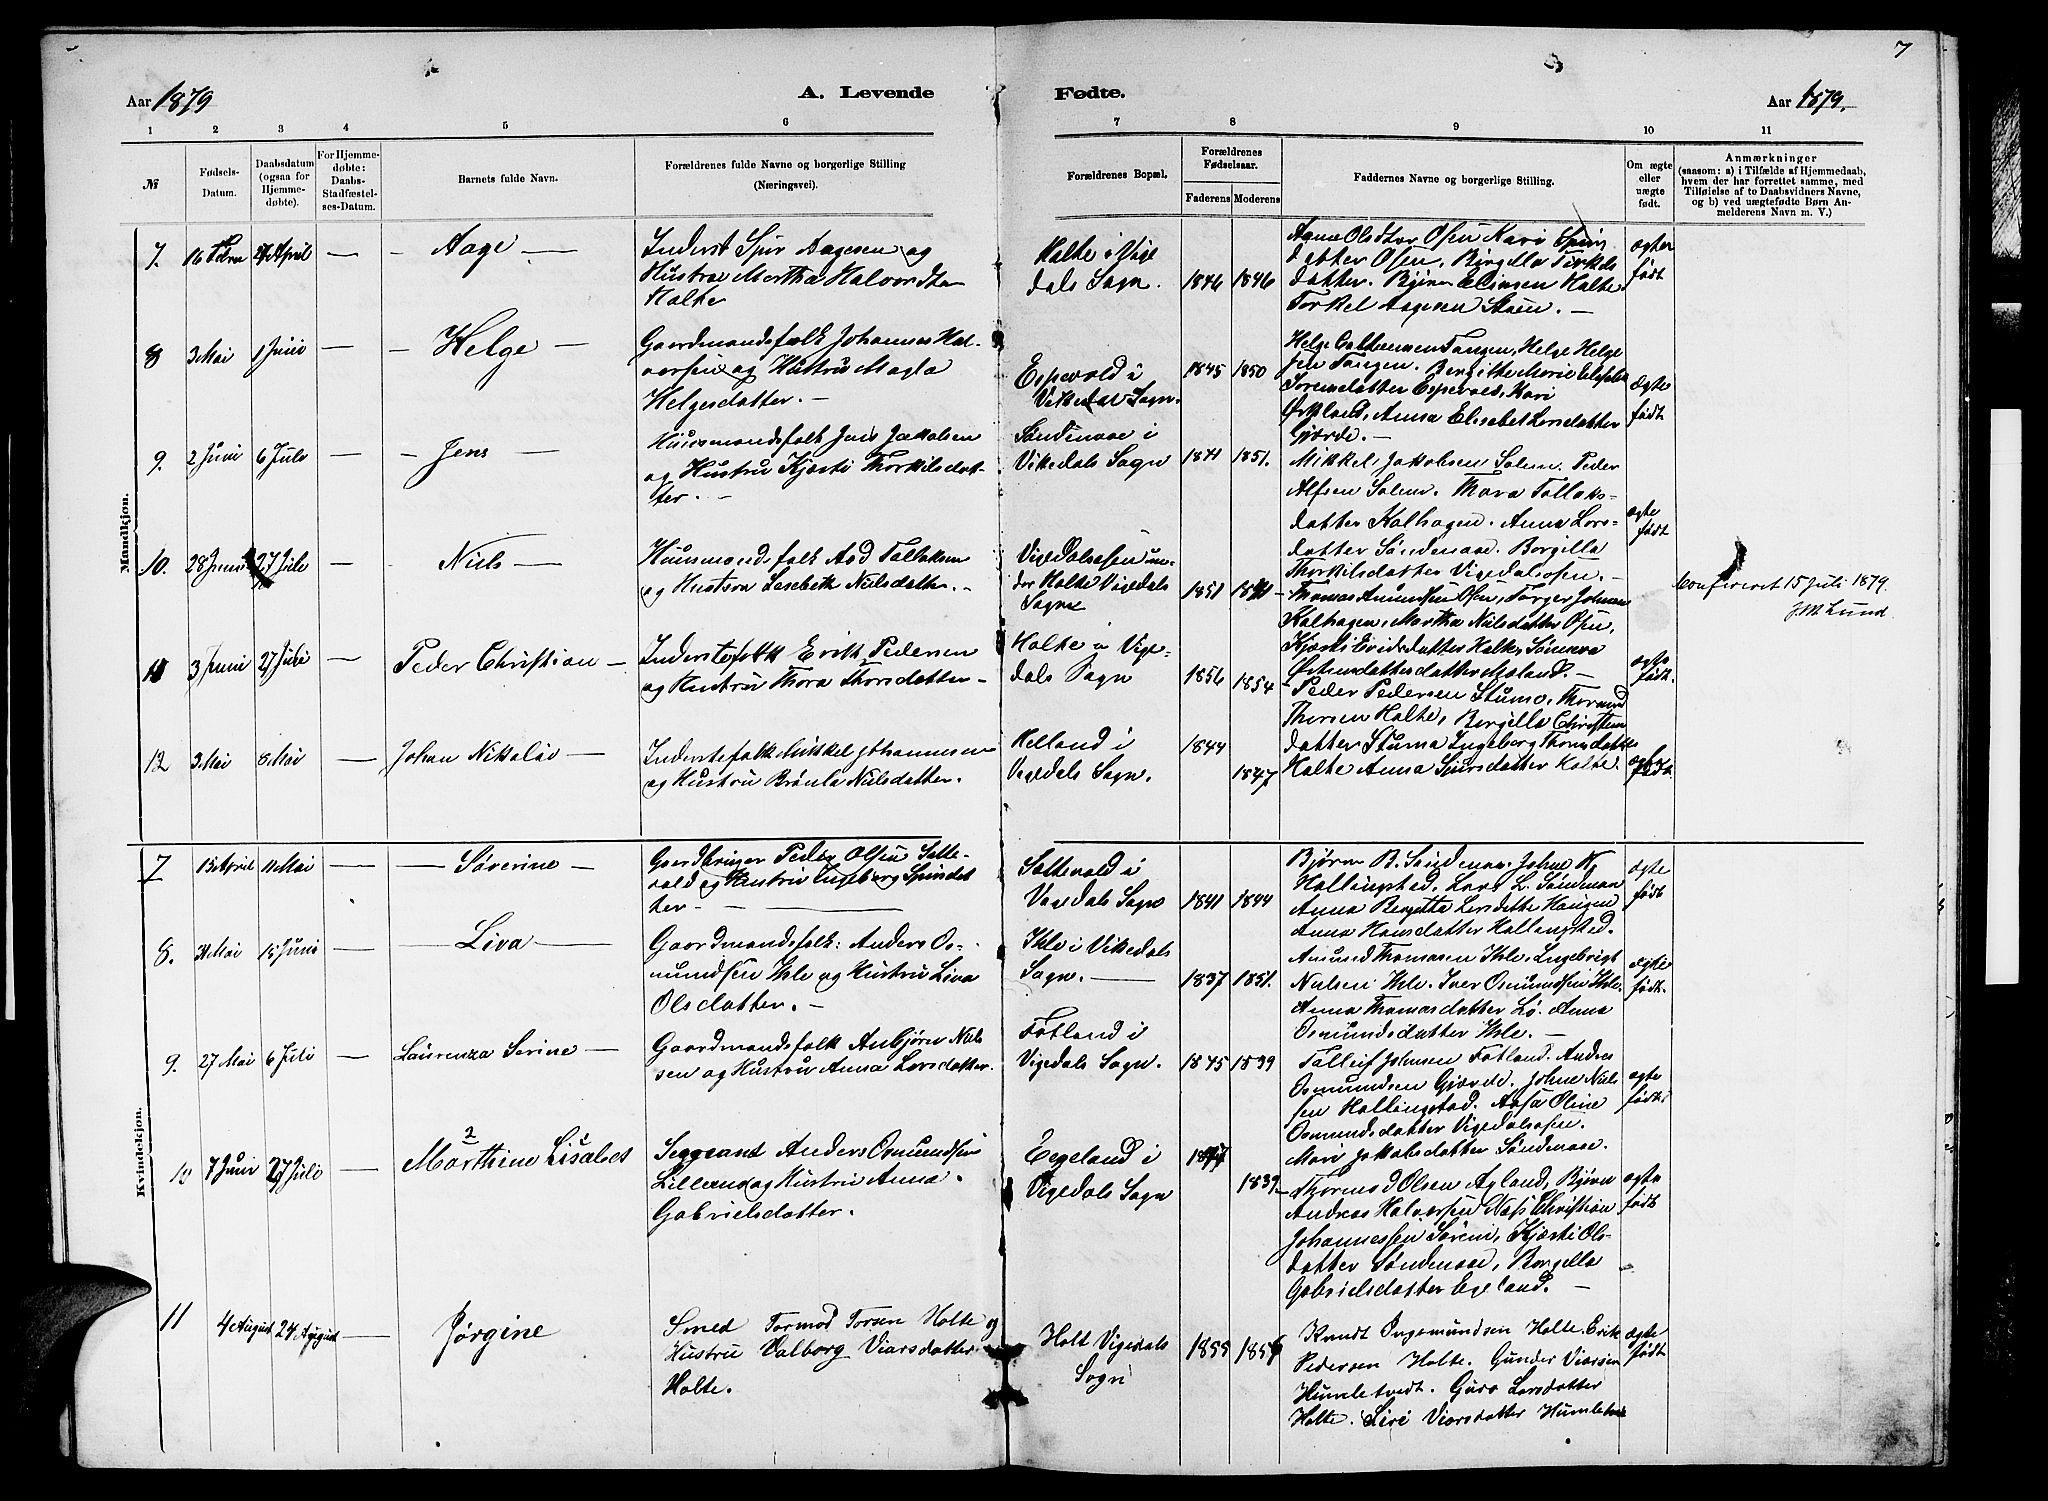 7
Aar 1879
A. Levende
Fødte.
Aar 1879.
1 2 3 4 5 6 7 8 9 10 11
№
Fødsels-
Datum.
Daabsdatum
(ogsaa for
Hjemme-
døbte).
For Hjemme-
døbte:
Daabs-
Stadfæstel-
ses-Datum.
Barnets fulde Navn.
Forældrenes fulde Navne og borgerlige Stilling
(Næringsvei).
Forældrenes Bopæl.
Forældrenes
Fødselsaar.
Faderens
Moderens
Faddernes Navne og borgerlige Stilling.
Om ægte
eller
uægte
født.
Anmærkninger
(saasom: a) i Tilfælde af Hjemmedaab,
hvem der har forrettet samme, med
Tilføielse af to Daabsvidners Navne,
og b) ved uægtefødte Børn An-
melderens Navn m. V.)
Mandkjøn.
7. 16 April — Aage —
Inderst Sjur Aagesen og
Hustru Martha Halvorsdtr
Halte
Halte i Vige
dals Sogn.
1846 1846
datter Osen, Borgilla Tørkels
datter. Bjørn Elingsen Halte
Torkel Aagesen Støen. —
ægte
født
8 3 Mai 1 Juni — Helge —
Gaardmandsfolk Johannes Hal-
vorsen og Hustru Magla
Helgesdatter. —
Espevold i
Vikedal Sogn.
1845 1850
Helge Tangen, Helge Helge
sen Tangen. Bergitte Marie
datter Espevold, Kari
Ørkland, Anna Elisabet Larsdatter
Gjærde. —
ægte
født
9. 2 Juni 6 Juli — Jens —
Huusmandsfolk Jens Jakobsen
og Hustru Kjæsti Thorkilsdat-
ter. —
Søndenaae i
Vikedals Sogn
1841 1851.
Mikkel Jakobsen Solem. Peder
Alfsen Solem. Thora Tollaks-
datter Kalhagen. Anna Lars-
datter Søndenaae. Borgilla
Thorkilsdatter Vigedalsosen. —
ægte
født
10. 28 Juni 27 Juli — Niels —
Huusmandsfolk Aad Tollaksen
og Hustru Lisebeth Nilsdatter. —
Vigedalsosen un-
der Halte Vigedals
Sogn
1851
Thomas Amundsen Osen, Torger Johnsen
Kalhagen, Martha Nilsdatter Osen,
Kjæsti datter Halte,
Østensdatter Maland. —
Confereret 15 Juli 1879.
J.M. Lund
11 3 Juni 27 Juli — Peder Christian —
Inderstefolk Erik Pedersen
og Hustru Thora Thorsdatter —
Halte i Vige-
dals Sogn
1856 1854
Peder Pedersen Stumo, Thormod
Thorsen Halte, Borgilla Christen
datter Stumo Ingeborg Thorsdatter
Halte Anna Sjursdatter Halte.
ægte
født.
12 3 Mai 8 Mai — Johan Nikolai —
Inderstefolk Mikkel Johannesen
og Hustru Brønla Nilsdatter.
Helland i
Vigedals Sogn.
1844 1847
ægte
født.
Kvindekjøn.
7 15 April 11 Mai — Søverine —
Gaardbruger Peder Olsen Satte-
vold og Hustru Ingeborg Spindat
ter —
Sattevold i
Vigedals Sogn
1841 1844
Bjørn B. Søndenaae. Johne N.
Hallingstad. Lars L. Søndenaae
Anna Bergitta Larsdatter Haugen
Anna Hansdatter Hallingstad.
ægte
født
8. Mai 15 Juni — Liva —
Gaardmandsfolk: Anders Os-
mundsen Ihle og Hustru Liva
Olsdatter. —
Ihle i Vikedals
Sogn. —
1837 1851.
Amund Thomasen Ihle. Ingebrigt
Nielsen Ihle. Iver Osmundsen Ihle.
Anna Thomasdatter Lø. Anna
Osmundsdatter Ihle. —
ægte
født.
9. 27 Mai 6 Juli — Laurenza Serine —
Gaardmandsfolk Anbjørn Niel-
sen og Hustru Anna Larsdatter.
Fatland i
Vigedals Sogn.
1845 1839
Tolleif Johnsen Fatland. Anders
Osmundsen Gjærde. Johne Niel-
sen Hallingstad. Aasa Oline
Osmundsdatter Vigedalsosen.
Mari Jakobsdatter Søndenaae.
ægte
født.
10 7 Juni 27 Juli — Marthine Lisabet
Sergeant Anders Osmundsen
Lilleraas og Hustru Anna
Gabrielsdatter.
Egeland i
Vigedals Sogn
1847 1839
Thormod Olsen Agland, Bjørn
Andreas Halvorsen Næs Christian
Johannessen Søreim, Kjæsti Ols-
datter Søndenaae, Borgilla
Gabrielsdatter Egeland. —
ægte
født
11 4 August 24 August — Jørgine
Smed Tormod Torsen Holte og
Hustru Valborg Viarsdatter
Holte.
Holt Vigedals
Sogn
1855
Knudt Ongemundsen Holte. Erik
Pedersen Holte. Gunder Viarsen
Humletvedt. Guro Larsdatter
Holte. Siri Viarsdatter Humletve
ægte
født